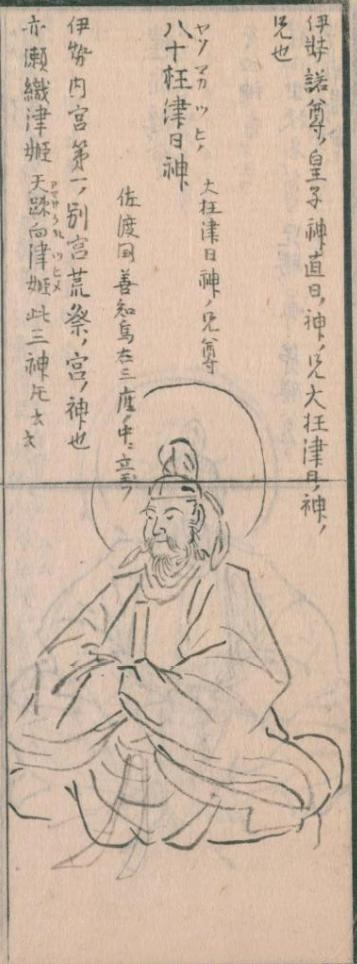 伊弉諾尊ノ皇子神直日ノ神ノ兄大枉津日ノ神ノ
兄也
ヤソマガツヒノ
八十枉津日神
大枉津日神ノ兄尊
佐渡国善知鳥在三座ノ中ニ立玉フ
伊勢内宮第一ノ別宮荒祭ノ宮ノ神也
亦瀬織津姫 天疎向津姫此三神